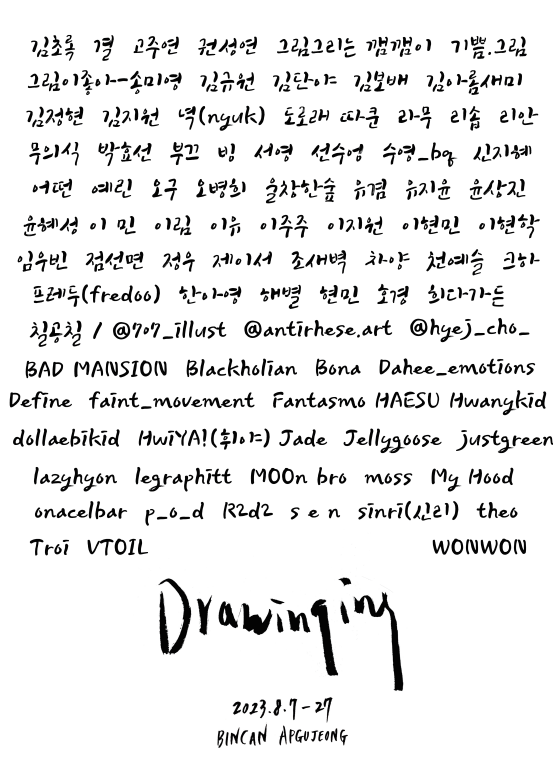 김초록 결 고주연 권성연 그림그리는 깸깸이 기쁨.그림
그림이좋아-송미영 김규원 김단야 김보배 김아름새미
김정현 김지원 녁(nyuk) 도로래 따쿤 라무 리솝 리안
무의식 박효선 부끄 빙 서영 선수영 수영_bq 신지혜
어떤 예린 오구 오병희 울창한숲 유겸 유지윤 윤상진
윤혜성 이 민 이림 이유 이주주 이지원 이현민 이현학
임우빈 점선면 정우 제이서 조새벽 차양 천예슬 크하
프레두(fredoo) 한아영 해별 현민 호경 희다가든
칠공칠 / @707_illust @antirhese.art @hyej_cho_
BAD MANSION Blackholian Bona Dahee_emotions
Define faint_movement Fantasmo HAESU Hwanykid
dollaebikid HwiYA!(휘야) Jade Jellygoose justgreen
lazyhyon legraphitt MOOn bro moss My Hood
onacelbar p_o_d R2d2 s e n sinri(신리) theo
Troi VTOIL WONWON
Drawinging
2023.8.7-27
BINCAN APGUJEONG